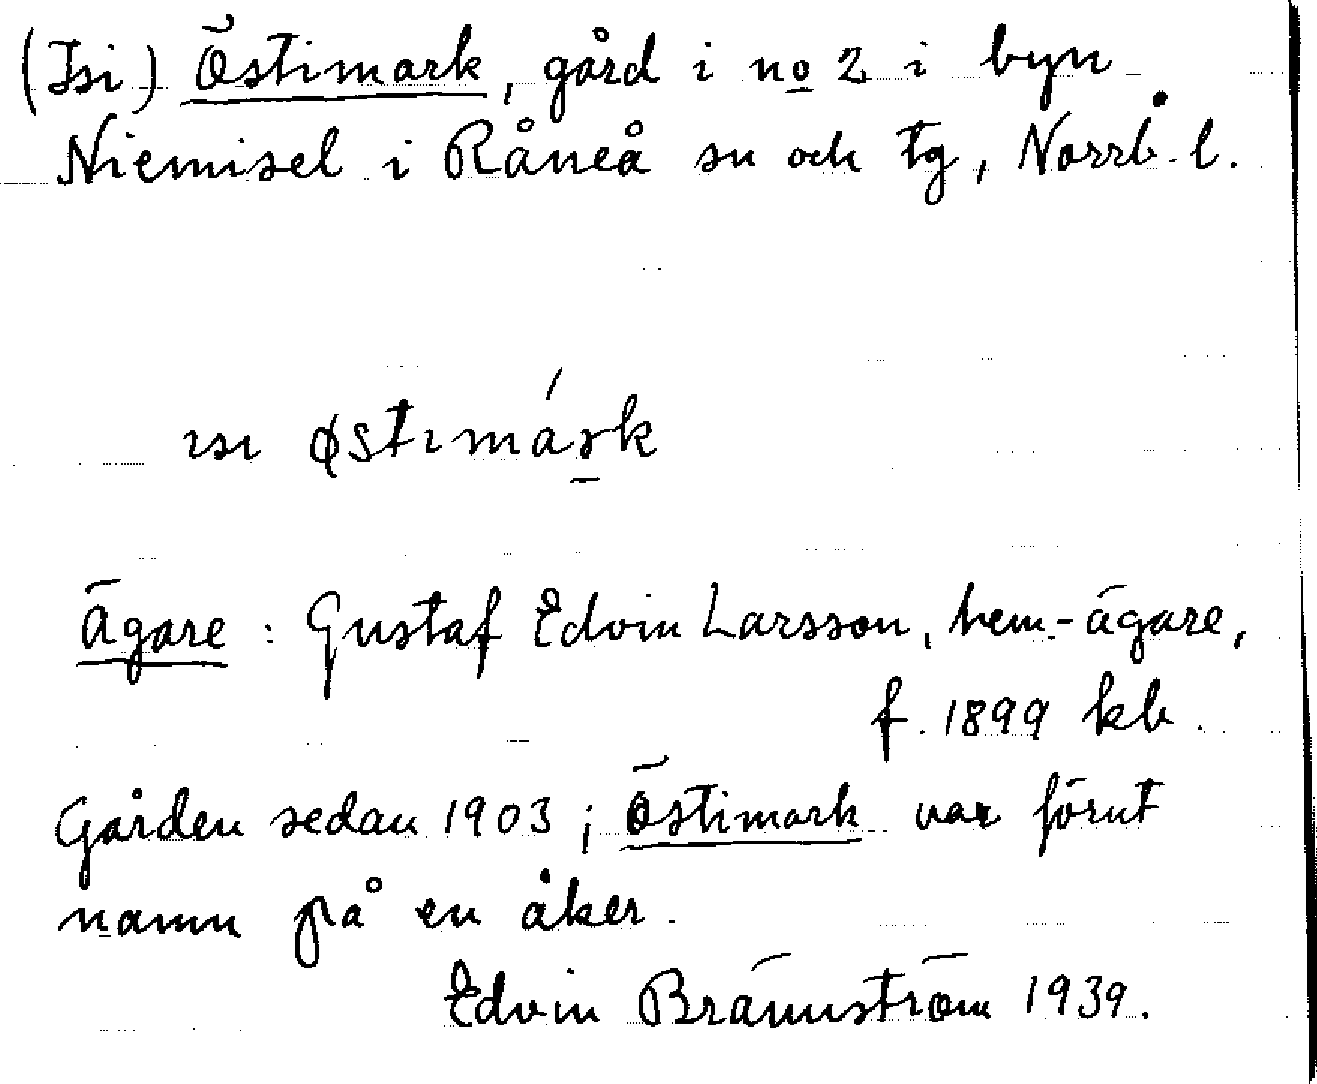 (Isi) Östimark, gård i no 2 i byn
Niemisel i Råneå sn och tg, Norrb. l.
ısı østımárk
Ägare : Gustaf Edvin Larsson, hem.-ägare,
f. 1899 kb.
Gården sedan 1903 ; Östimark var förut
namn på en åker.
Edvin Brännström 1939.